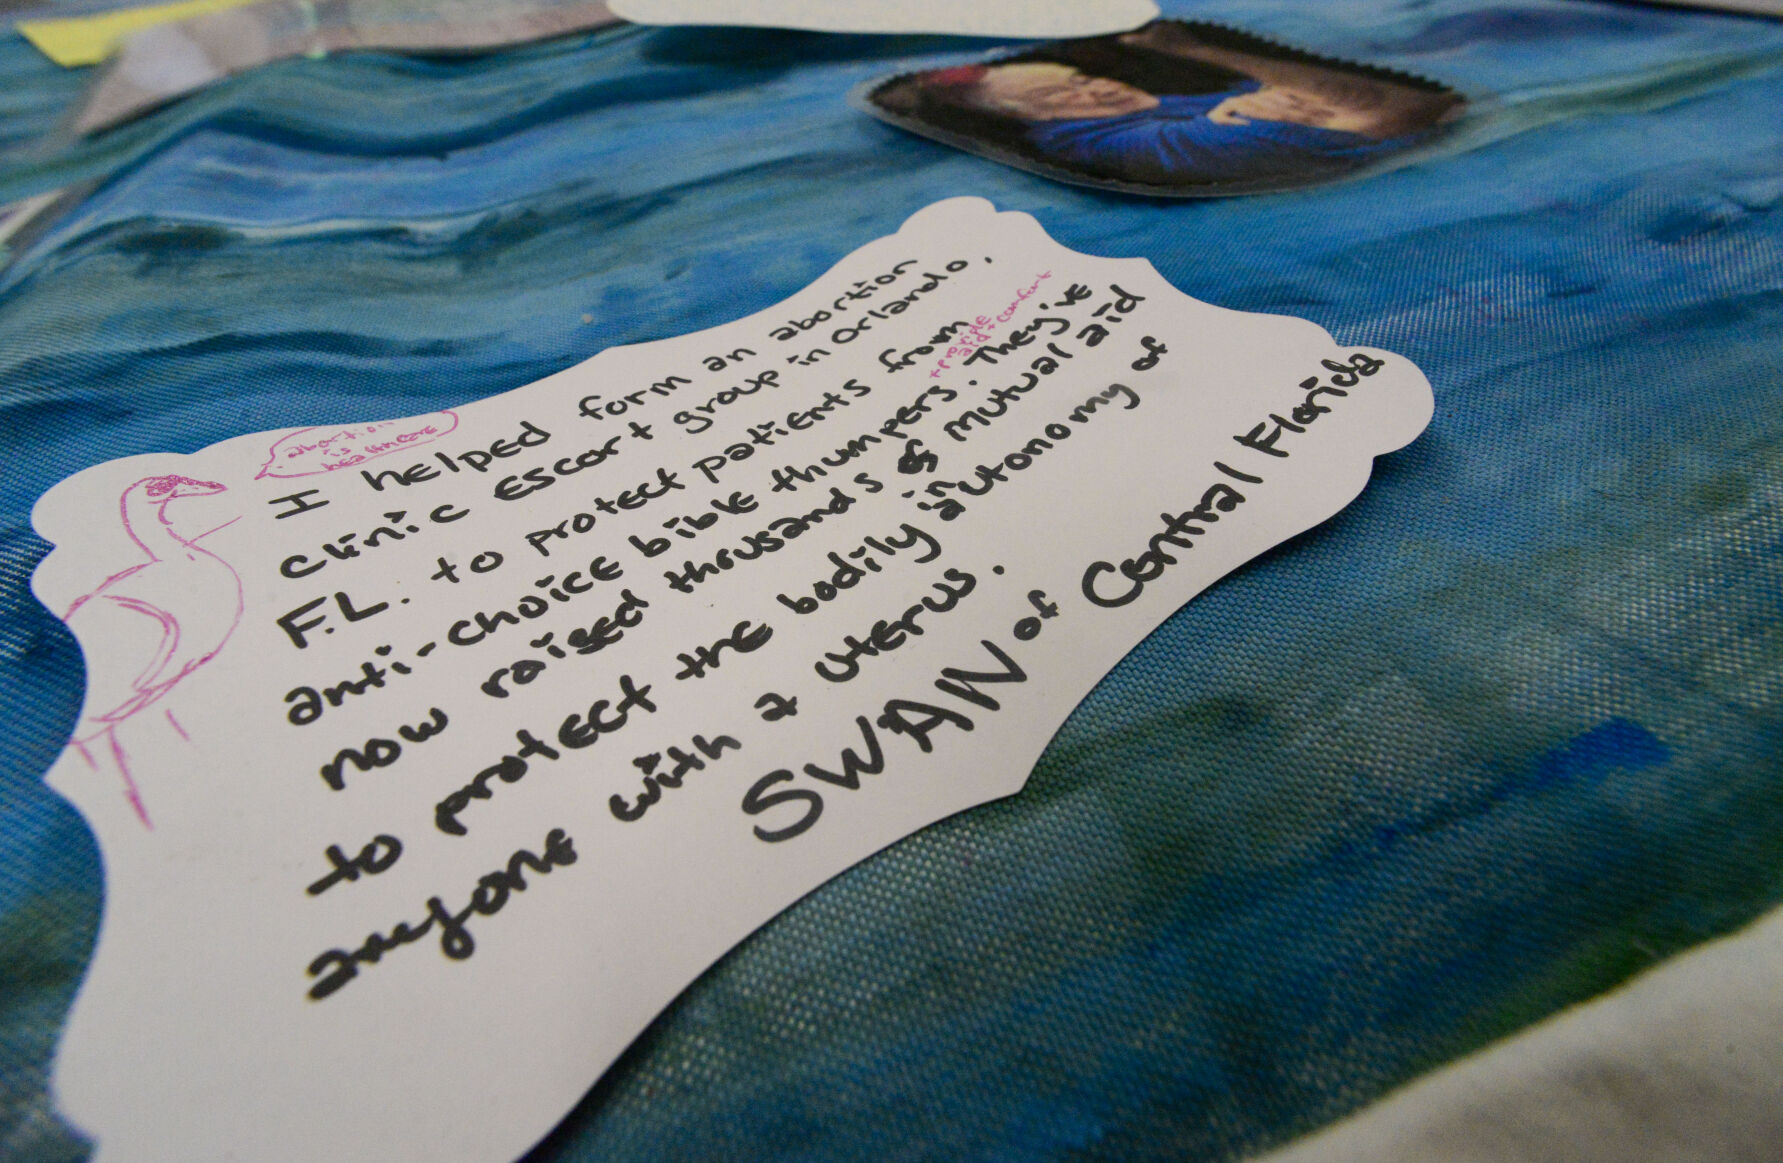 abortion
is
healthcare
I helped form an abortion
clinic escort group in Orlando,
F.L. to protect patients from
+ provide
aid + comfort
anti-choice bible thumpers. They've
now raised thousands in mutual aid
to protect the bodily autonomy of
anyone with a uterus.
SWAN of Central Florida